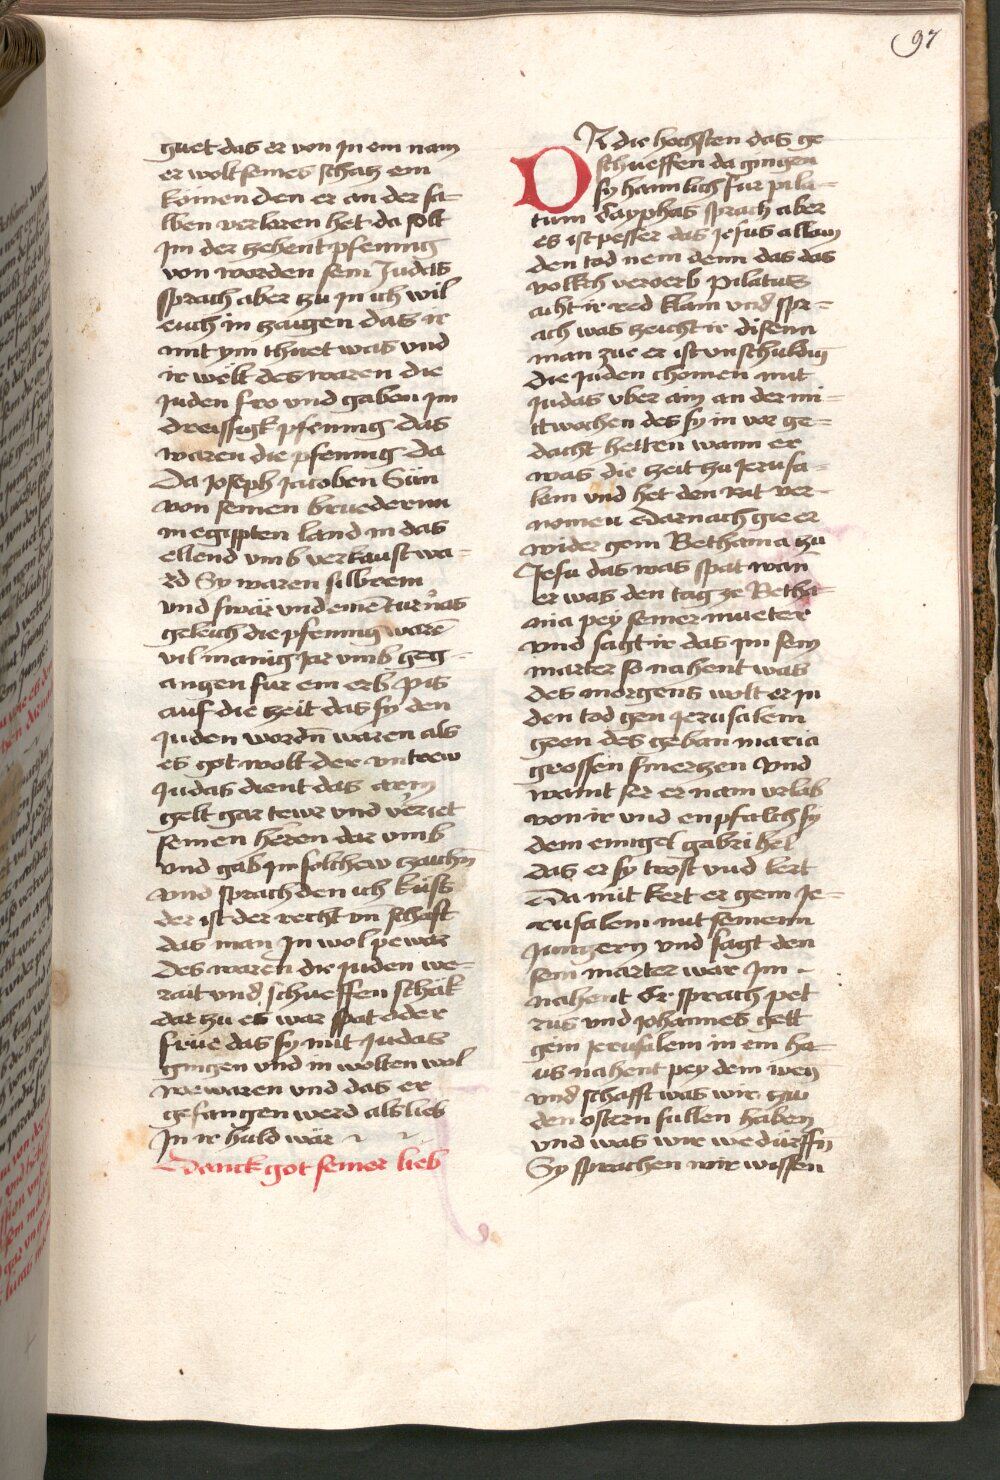 97
guet das er von jn ein nam
er wolt seines schatz ein
kömen den er an der sa-
lben verloren het da solt
jm der zehent pfennig
von worden sein Judas
sprach aber zu jn ich wil
euch in zaigen das ir
mit ym thuet was vnd
ir welt des waren die
juden fro vnd gaben jm
dreissigk pfennig das
waren die pfennig da
Da joseph jacoben Sün
von seinen bruedernn
in egippten land in das
ellend vmb verkauft wa-
rd Sy waren silbrein
vnd swär vnd
geleich die pfennig warē
vil manig jar vmb geg-
angen fur ein erb pis
auf die zeit das sy den
juden wordn̄ waren als
es got wolt der vntrew
judas dient das arm
gelt gar tewr vnd verriet
seinen heren dar vmb
vnd gab jm solchew zaichn̄
vnd sprach den ich küss
der ist der recht vn̄ schaft
das man jn wol pewar
Des waren die juden we-
rait vnd schueffen schäk
dar zu es war spat oder
frue das sy mit judas
gingen vnd in wolten wol
wewaren vnd das er
gefangen werd als lieb
jn ir huld wär
Danck got seiner lieb
DA die hochsten das ge
schueffen da gingen
sy haimlich fur pila-
tum Cayphas sprach aber
es ist pesser das jesus allain
den tod nem denn das das
volkch verderb Pilatus
acht ir red klain vnd spr-
ach was zeicht ir disenn
man zue er ist vnschuldig
die juden chomen mit
judas vber ain an der mi-
ttwochen des sy in vor ge-
dacht hetten wann er
was die zeit zu jerusa-
lem vnd het den rat ver-
nomen Darnach gie er
wider gein Bethania zu
Jesu das was spat wan
er was den tag ze Betha-
nia pey seiner mueter
vnd sagt ir das jm sein
marter so nahent was
des morgens wolt er jn
den tod gen jerusalem
geen des geban maria
grossen smertzen vnd
waint ser er nam vrlab
von ir vnd enpfalch sy
dem enngel gabrihel
das er sy trost vnd lert
Da mit kert er gein je-
rusalem mit seinenn
jungern vnd sagt den
sein marter war jm
nahent Er sprach pet
rus vnd johannes gett
gein jerusalem in ein ha-
us nahent pey dem weg
vnd schafft was wir zw
den ostern sullen haben
vnd was wir wedürffn̄
Sy sprachen wir wissen